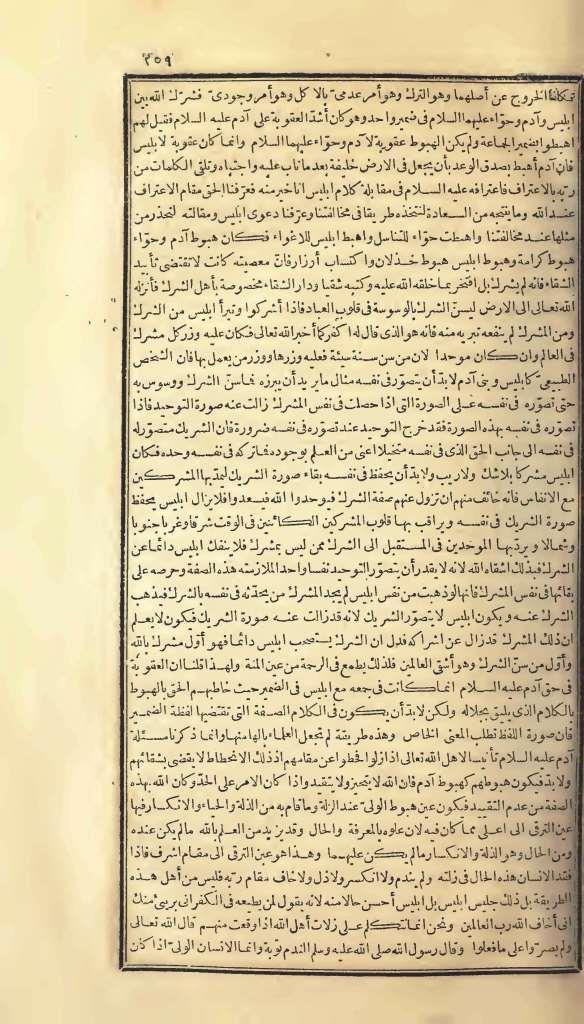 ٢٥٩
تمكنا الخروج عن أصلهما وهو الترك وهو أمر عدمي بالاكل وهو أمر وجودي فشرك الله بين
ابليس وآدم وحوّاء عليهما السلام في ضمير واحد وهو كان أشدّ العقوبة على آدم عليه السلام فقيل لهم
اهبطوا بضمير الجماعة ولم يكن الهبوط عقوبة لآدم وحوّاء عليهما السلام وانما كان عقوبة لابليس
فان آدم أهبط بصدق الوعد بأن يجعل في الارض خليفة بعد ما تاب عليه واجتباه وتلقى الكلمات من
ربه بالاعتراف فاعترافه عليه السلام في مقابلة كلام ابليس انا خير منه فعرّفنا الحق مقام الاعتراف
عند الله وما ينتجه من السعادة لنتخذه طريقا في مخالفتنا وعرّفنا دعوى ابليس ومقالته لنحذر من
مثلها عند مخالفتنا واهبطت حوّاء للتناسل واهبط ابليس للاغواء فكان هبوط آدم وحوّاء
هبوط كرامة وهبوط ابليس هبوط خذلان واكتساب أوزار فان معصيته كانت لا تقتضي تأبيد
الشقاء فانه لم يشرك بل افتخر بما خلقه الله عليه وكتبه شقيا ودار الشقاء مخصوصة بأهل الشرك فأنزله
الله تعالى الى الارض ليسنّ الشرك بالوسوسة في قلوب العباد فاذا أشركوا وتبرأ ابليس من الشرك
ومن المشرك لم ينفعه تبريه منه فانه هو الذي قال له اكفر كما أخبر الله تعالى فكان عليه وزر كل مشرك
في العالم وان كان موحدا لان من سن سنة سيئة فعليه وزرها ووزر من يعمل بها فان الشخص
الطبيعي كابليس وبني آدم لابدّ أن يتصوّر في نفسه مثال ما يريد أن يبرزه فما سنّ الشرك ووسوس به
حتى تصوّره في نفسه على الصورة التي اذا حصلت في نفس المشرك زالت عنه صورة التوحيد فاذا
تصوّره في نفسه بهذه الصورة فقد خرج التوحيد عند تصوّره في نفسه ضرورة فان الشريك متصوّر له
في نفسه الى جانب الحق الذي في نفسه متخيلا اعني من العلم بوجوده فما تركه في نفسه وحده فكان
ابليس مشركا بلا شك ولا ريب ولابدّ أن يحفظ في نفسه بقاء صورة الشريك ليمدّ بها المشركين
مع الانفاس فانه خائف منهم ان تزول عنهم صفة الشرك فيوحدوا الله فيسعدوا فلا يزال ابليس يحفظ
صورة الشريك في نفسه ويراقب بها قلوب المشركين الكائنين في الوقت شرقا وغربا جنوبا
وشمالا ويردّ بها الموحدين في المستقبل الى الشرك ممن ليس بمشرك فلا ينفك ابليس دائما عن
الشرك فبذلك اشقاه الله لانه لا يقدر أن يتصوّر التوحيد نفسا واحد الملازمته هذه الصفة وحرصه على
بقائها في نفس المشرك فانها لو ذهبت من نفس ابليس لم يجد المشرك من يحدّثه في نفسه بالشرك فيذهب
الشرك عنه ويكون ابليس لا يتصوّر الشريك لانه قد زالت عنه صورة الشريك فيكون لا يعلم
ان ذلك المشرك قد زال عن اشراكه فدل ان الشرك يستصحب ابليس دائما فهو أوّل مشرك بالله
وأوّل من سنّ الشرك وهو أشقى العالمين فلذلك يطمع في الرحمة من عين المنة ولهذا قلنا ان العقوبة
في حق آدم عليه السلام انما كانت في جمعه مع ابليس في الضمير حيث خاطبهم الحق بالهبوط
بالكلام الذي يليق بجلاله ولكن لابدّ أن يكون في الكلام الصفة التي تقتضيها لفظة الضمير
فان صورة اللفظ تطلب المعنى الخاص وهذه طريقة لم تجعل العلماء بالها منها وانما ذكرنا مسئلة
آدم عليه السلام تأنيسا لاهل الله تعالى اذا زلوا فحطوا عن مقامهم ان ذلك الانحطاط لا يقضي بشقائهم
ولابدّ فيكون هبوطهم كهبوط آدم فان الله لا يتحيز ولا يتقيد واذا كان الامر على الحدّ وكان الله بهذه
الصفة من عدم التقييد فيكون عين هبوط الولي عند الزلة وما قام به من الذلة والحياء والانكسار فيها
عين الترقي الى اعلى مما كان فيه لان علوه بالمعرفة والحال وقد يزيد من العلم بالله مالم يكن عنده
ومن الحال وهو الذلة والانكسار مالم يكن عليهما وهذا هو عين الترقي الى مقام اشرف فاذا
فقد الانسان هذه الحال في زلته ولم يندم ولا انكسر ولا ذل ولا خاف مقام ربه فليس من أهل هذه
الطريقة بل ذلك جليس ابليس بل ابليس أحسن حالا منه لانه يقول لمن يطيعه في الكفر اني بريئ منك
اني أخاف الله رب العالمين ونحن انما نتكلم على زلات أهل الله اذا وقعت منهم قال الله تعالى
ولم يصرّوا على ما فعلوا وقال رسول الله صلى الله عليه وسلم الندم توبة وانما الانسان الولي اذا كان